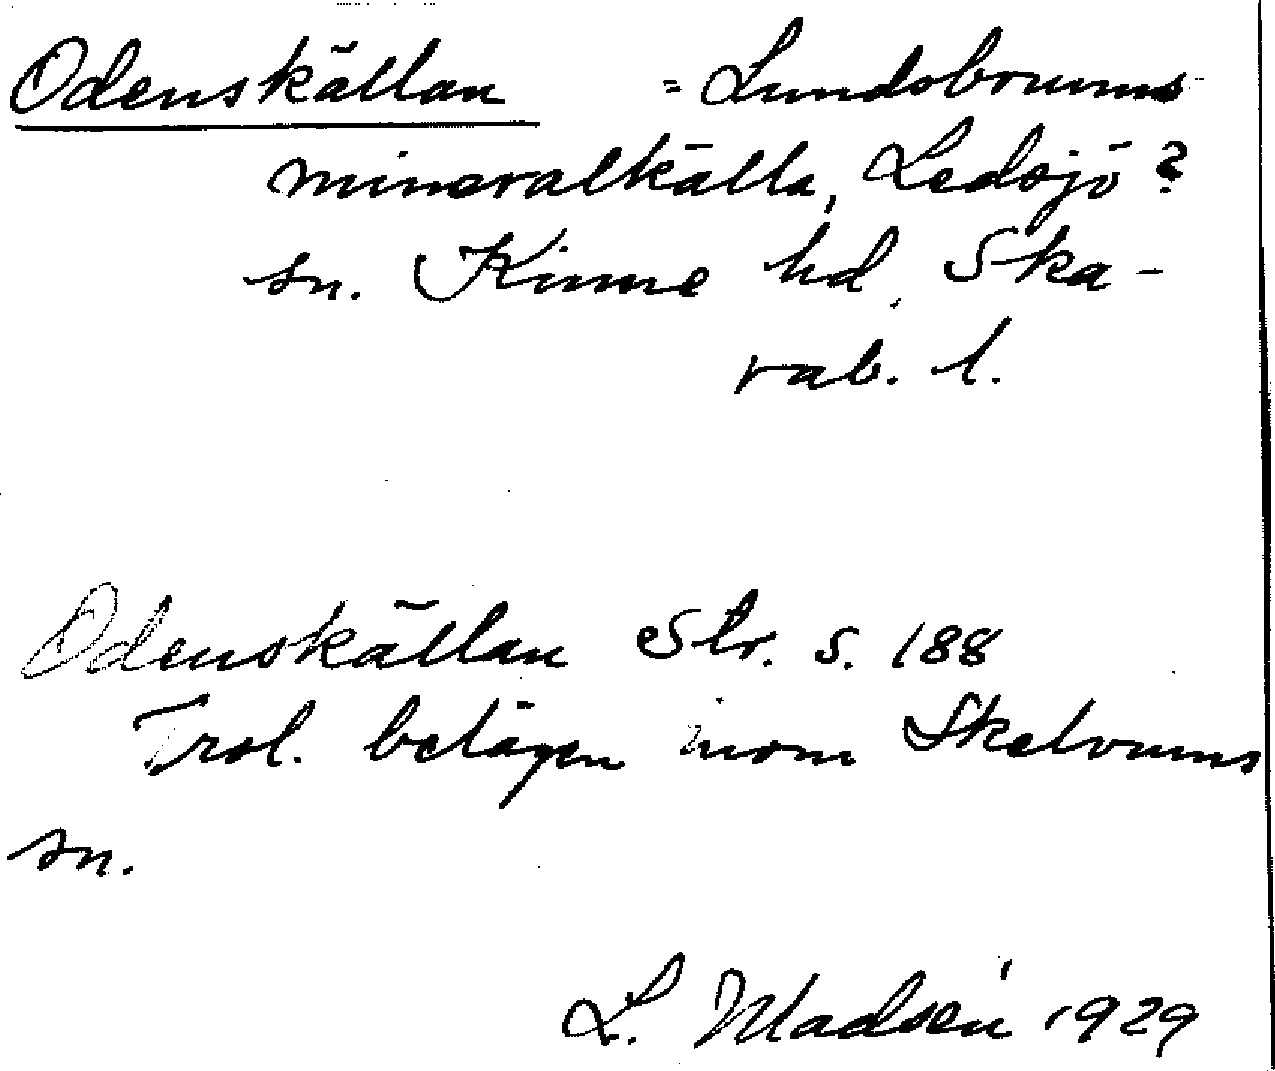 Odenskällan = Lundsbrunns
mineralkälla, Ledsjö?
sn. Kinne hd, Ska-
rab. l.
Odenskällan Str. s. 188
Trol. belägen inom Skelvums
sn.
L. Madsén 1929